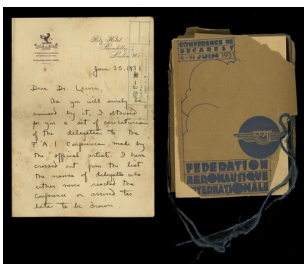 Ritz Hotel
Piccadilly
London
June 25, 1931
Dear Dr. Lewis,
As you will surely be
by it, I obtained
for you a set of caricatures
of the delegates to the
F. A. I. Conference, made by
the official artist. I have
crossed out from the list
the names of delegates who
either never reached the
Conference or arrived too
late to be drawn
CONFERENCE DE
BUCAREST
JUIN 1931
FEDERATION
AERONAUTIQUE
INTERNATIONALE